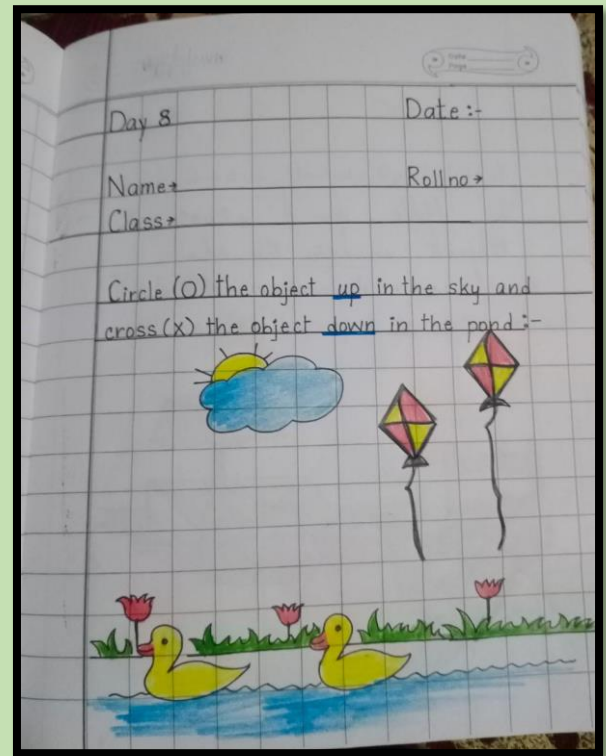 Day 8 Date :-
Name→ Roll no→
Class→
Circle (O) the object up in the sky and
cross (X) the object down in the pond :-